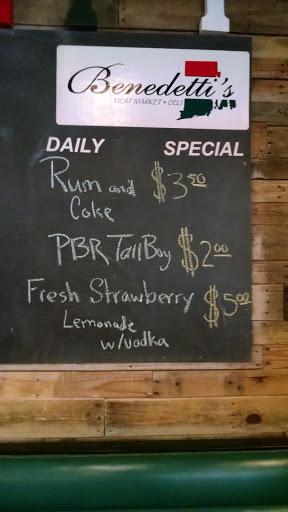 Benedetti's
MEAT MARKET • DELI
DAILY SPECIAL
Rum and $3.50
Coke
PBR Tall Boy $2.00
Fresh Strawberry $5.00
Lemonade
w/vodka